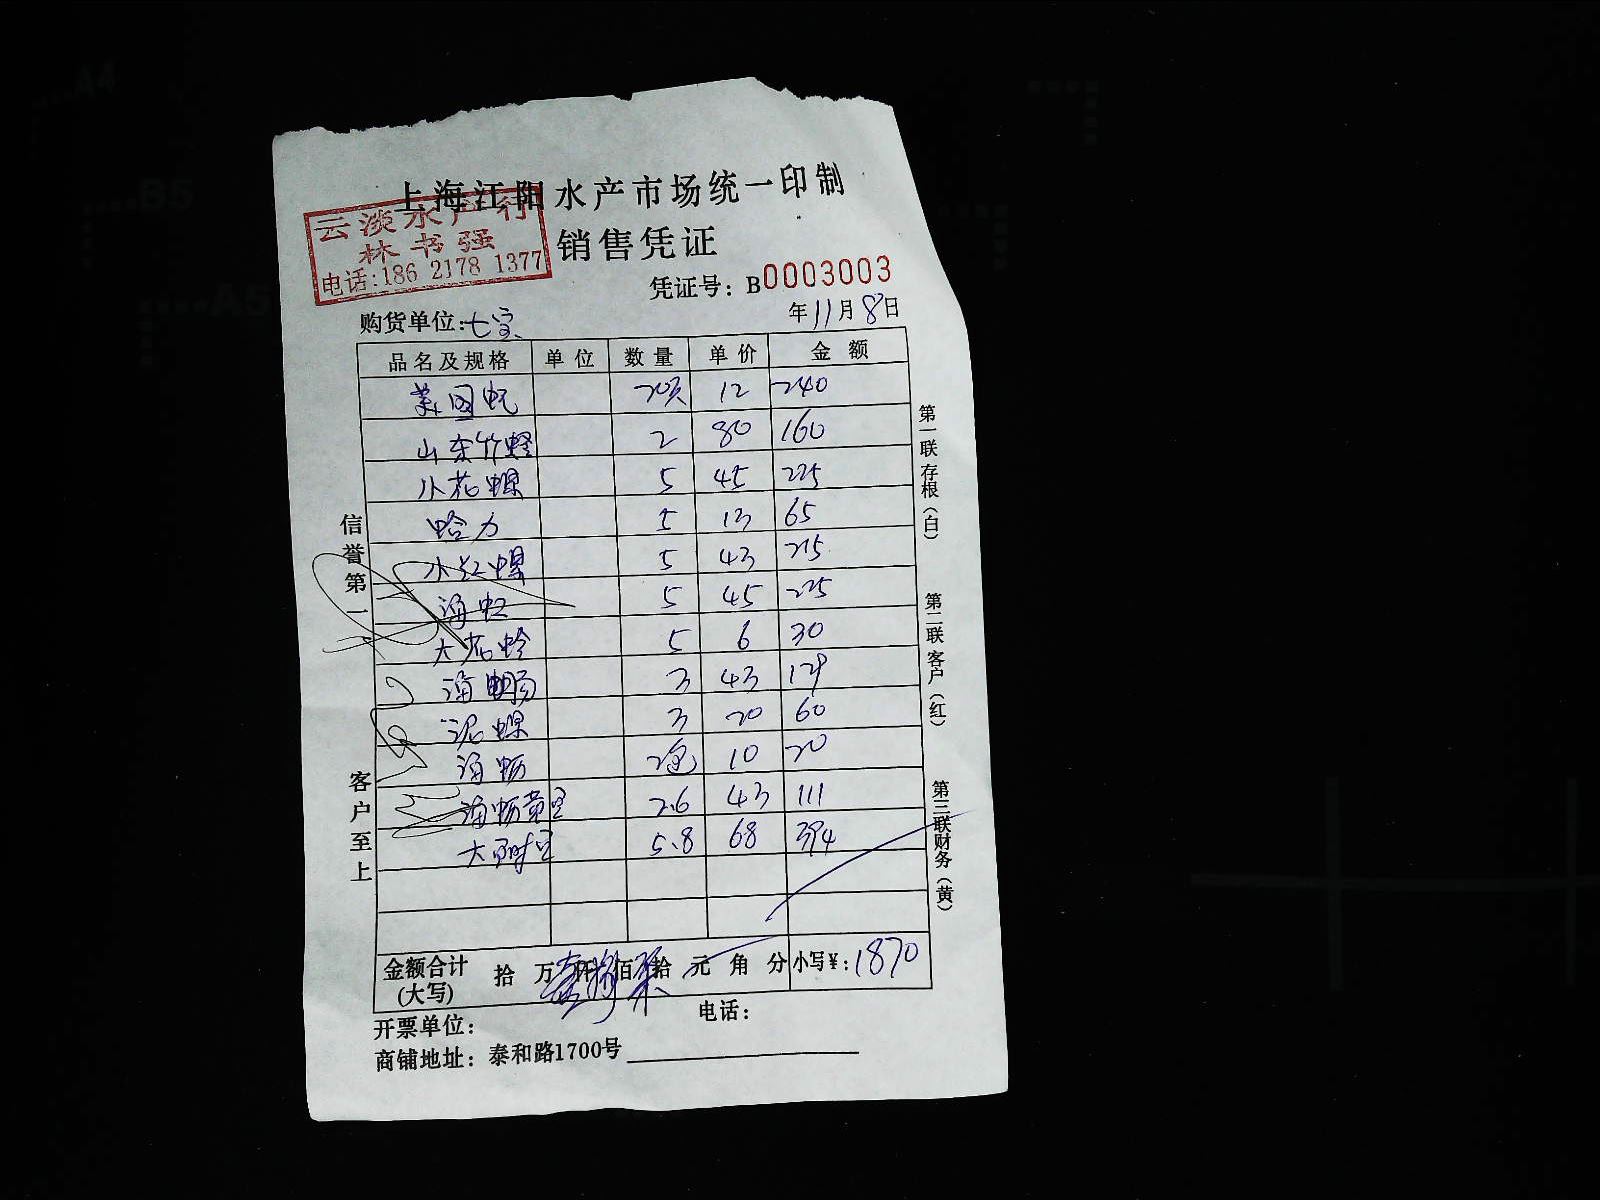 上海江阳水产市场统一印制
云淡水产行
林书强
电话:186 2178 1377
销售凭证
凭证号: B0003003
购货单位:七宝
年11月8日
品名及规格 单位 数量 单价 金额
美国蚝 20只 12 240
山东竹蛏 2 80 160
小花螺 5 45 225
蛤力 5 13 65
小红螺 5 43 215
海虹 5 45 225
大花蛤 5 6 30
海肠 3 43 129
泥螺 3 20 60
海肠 2包 10 20
2.6 43 111
5.8 68 394
金额合计(大写) 拾 万 仟 佰 拾 元 角 分 小写¥:1870
开票单位:
电话:
商铺地址: 泰和路1700号
信誉第一
客户至上
第一联存根(白)
第二联客户(红)
第三联财务(黄)
A4
B5
A5